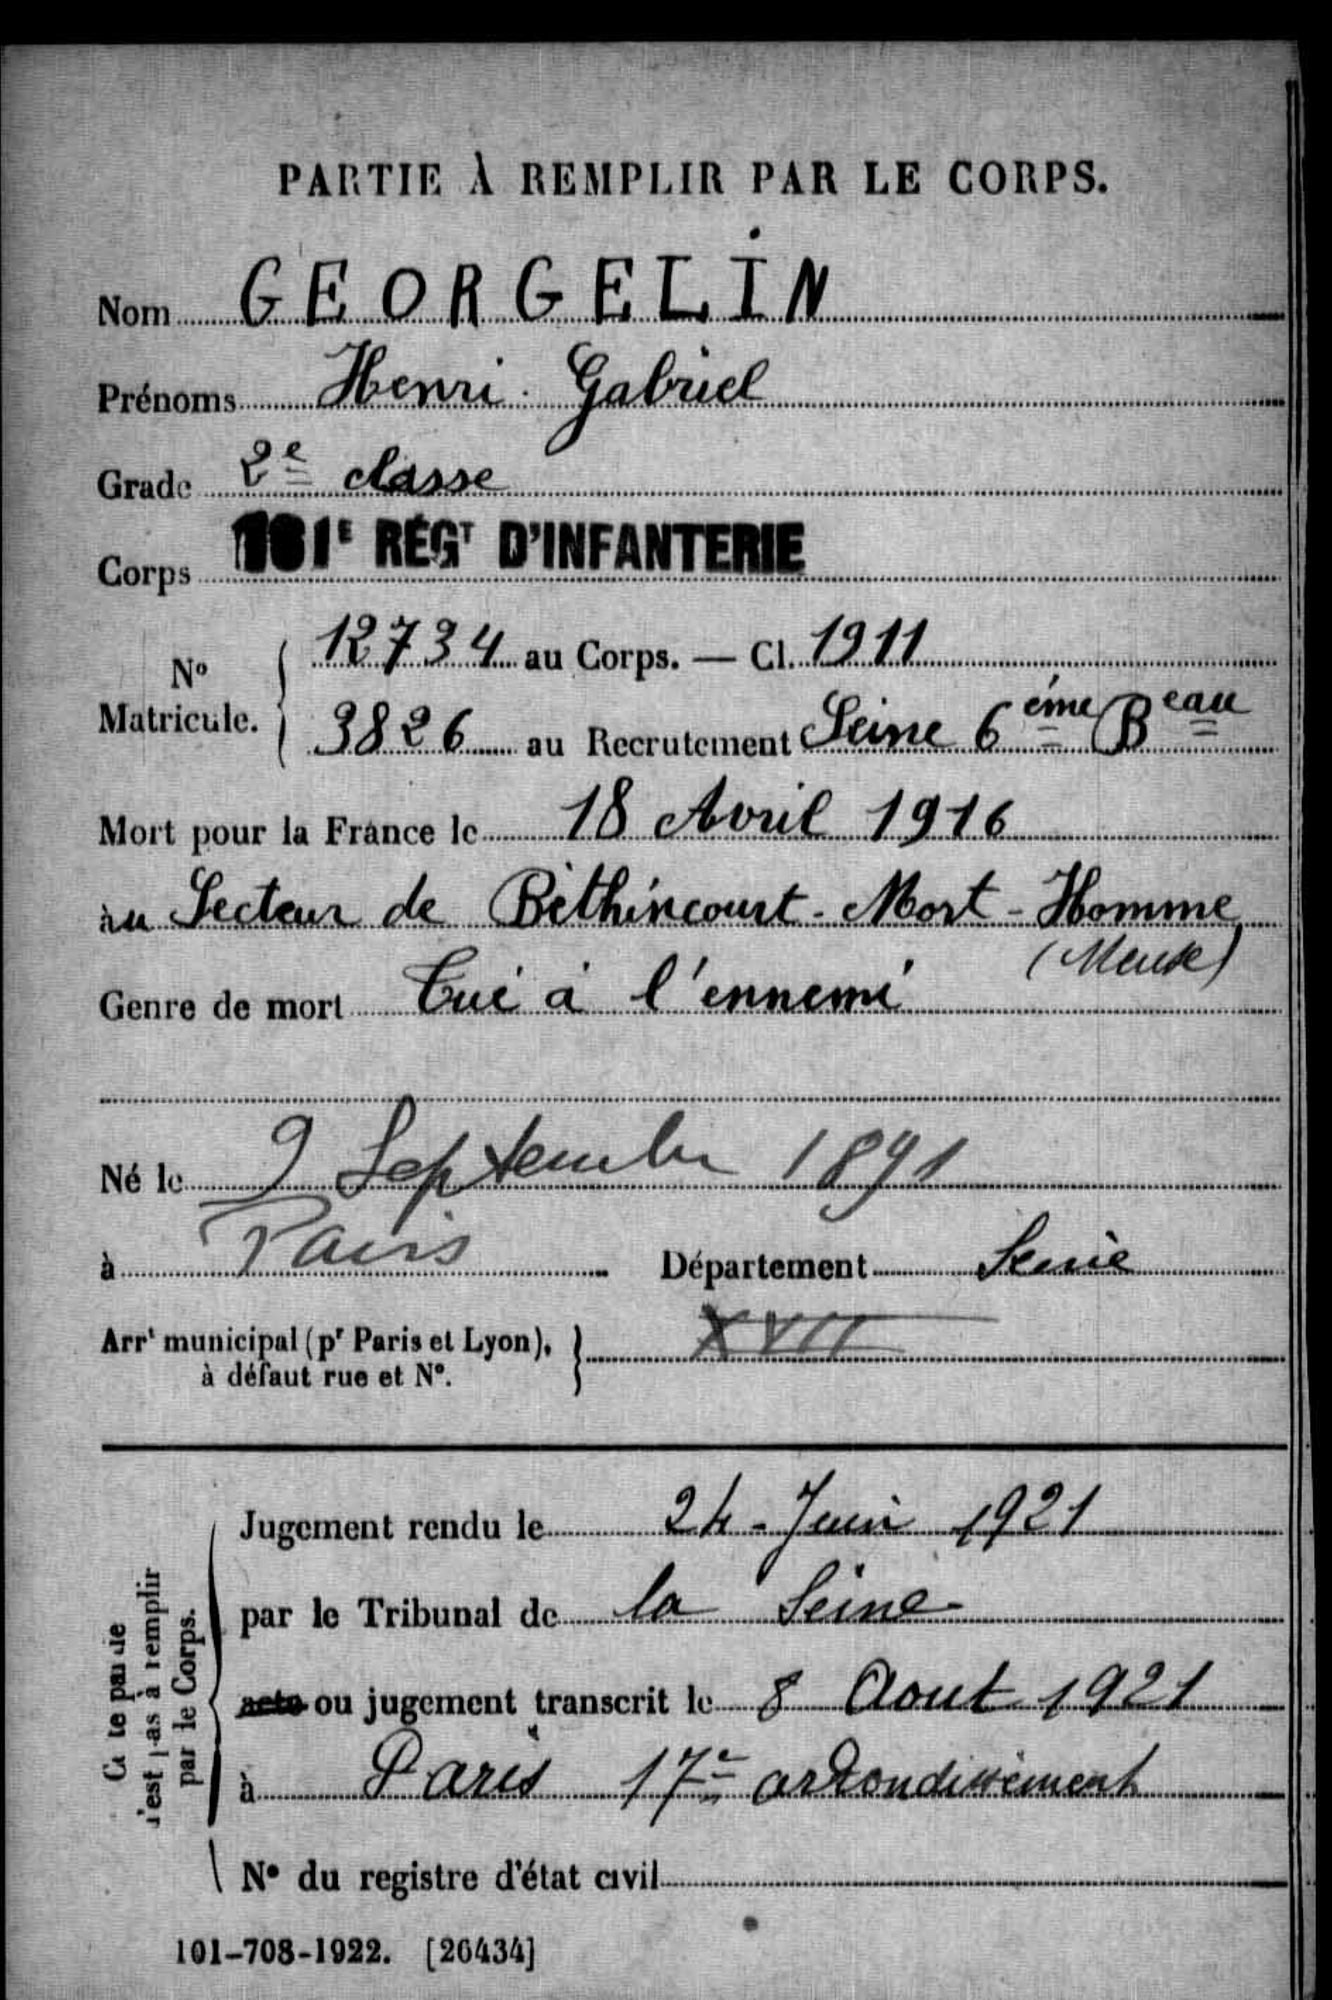 PARTIE À REMPLIR PAR LE CORPS.
Nom GEORGELIN
Prénoms Henri Gabriel
Grade 2e classe
Corps RÉGT D'INFANTERIE
No Matricule. 12734 au Corps. — Cl. 1911
3826 au Recrutement Seine 6ème Beau
Mort pour la France le 18 Avril 1916
au Secteur de Béthincourt - Mort - Homme
(Meuse)
Genre de mort Tué à l'ennemi
Né le 9 Septembre 1891
à Paris Département Seine
Arrt municipal (pr Paris et Lyon), à défaut rue et No. XVII
Jugement rendu le 24 - Juin 1921
par le Tribunal de la Seine
acte ou jugement transcrit le 8 Aout 1921
à Paris 17e arrondissement
No du registre d'état civil
Cette partie n'est pas à remplir par le Corps.
101-708-1922. [26434]